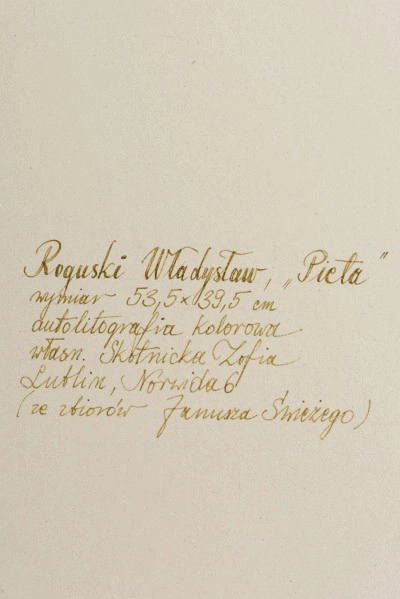 Roguski Władysław, „Pieta"
wymiar 53,5×39,5 cm
autolitografia kolorowa
własn. Skotnicka Zofia
Lublin, Norwida 6
(ze zbiorów Janusza Świeżego)